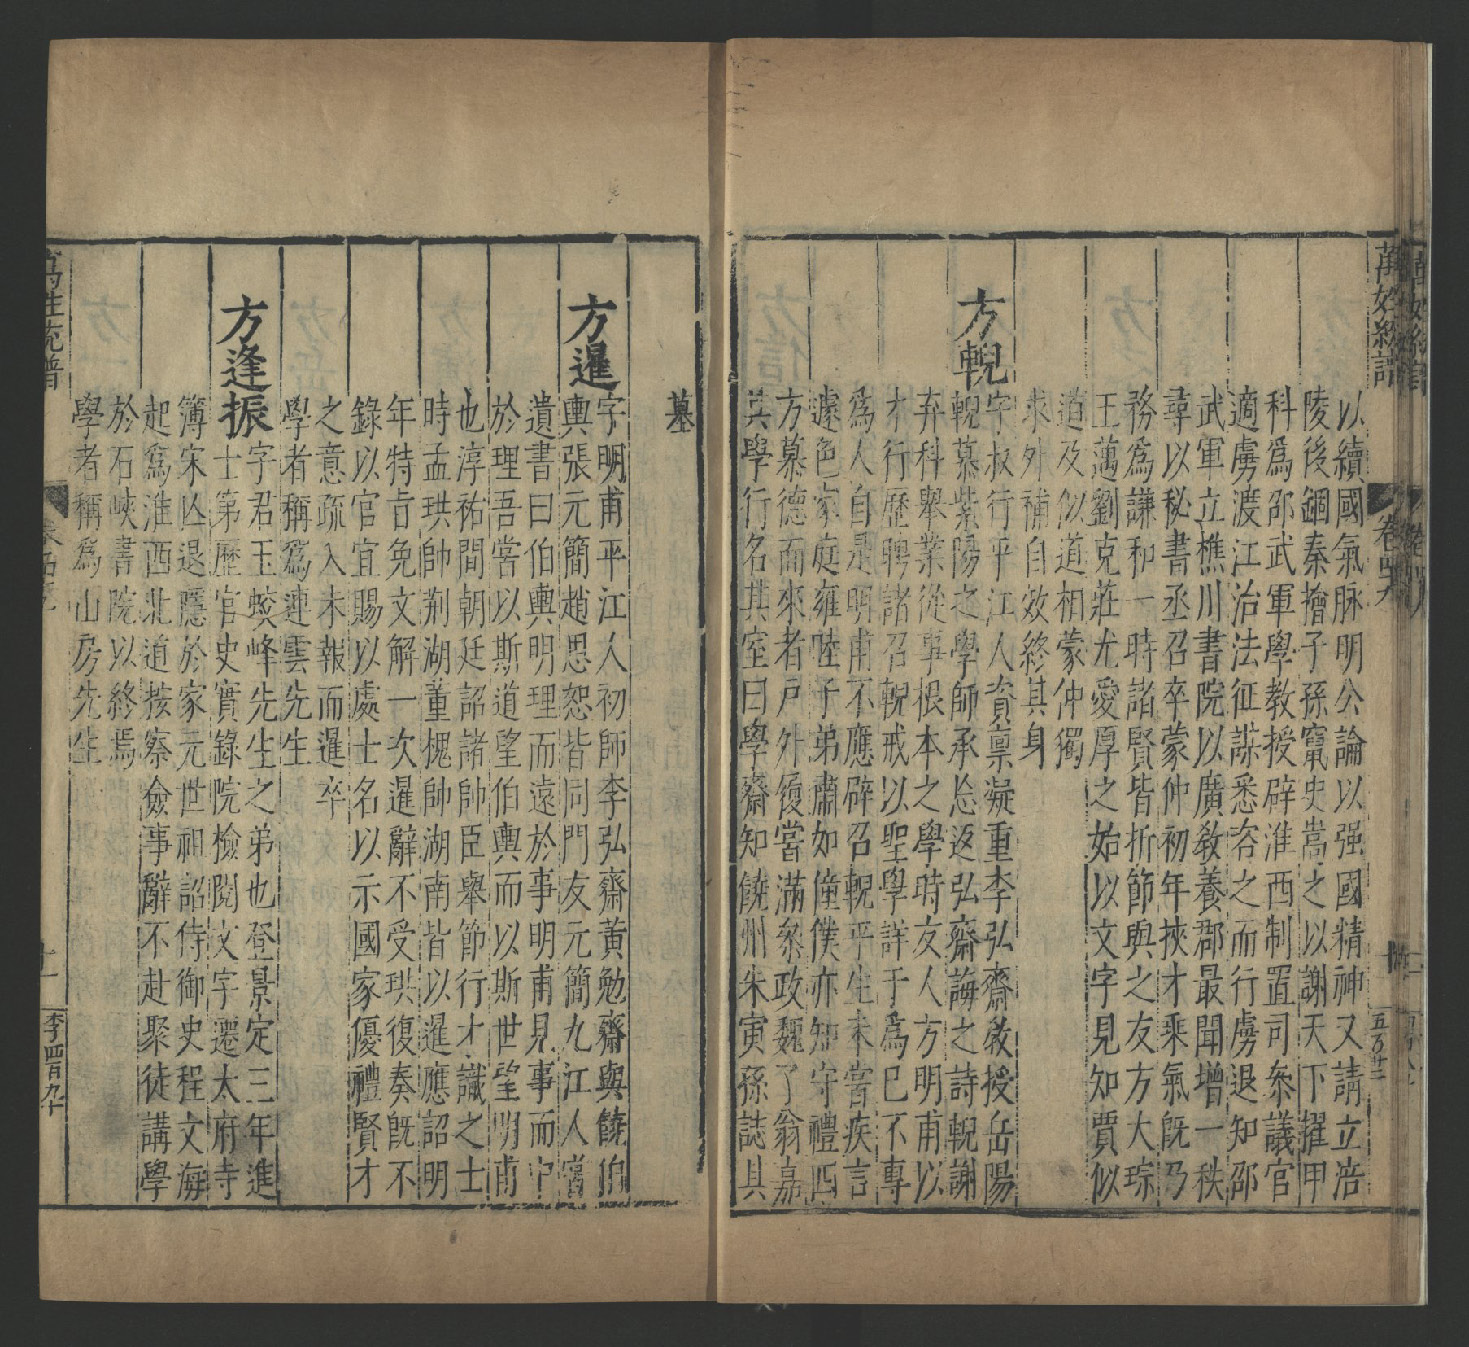 萬姓統譜 卷四九
以續國氣脉明公論以强國精神又請立涪
陵後錮秦檜子孫竄史嵩之以謝天下擢甲
科爲邵武軍學教授辟淮西制置司叅議官
適虜渡江治法征謀悉咨之而行虜退知邵
武軍立樵川書院以廣敎養郡最聞增一秩
尋以秘書丞召卒蒙仲初年挾才乘氣旣乃
務爲謙和一時諸賢皆折節與之友方大琮
王邁劉克莊尤愛厚之始以文字見知賈似
道及似道相蒙仲獨
求外補自效終其身
方輗
字叔行平江人資禀凝重李弘齋敎授岳陽
輗慕紫陽之學師承忘返弘齋誨之詩輗謝
弃科舉業從事根本之學時友人方明甫以
才行歷聘諸召輗戒以聖學詳于爲已不專
爲人自是明甫不應辟召輗平生未嘗疾言
遽色家庭雍睦子弟肅如僮僕亦知守禮西
方慕德而來者戸外履嘗滿叅政魏了翁嘉
其學行名其室曰學齋知饒州朱寅孫誌其
墓
方暹
字明甫平江人初師李弘齋黃勉齋與饒伯
輿張元簡趙思恕皆同門友元簡九江人嘗
遺書曰伯輿明理而遠於事明甫見事而中
於理吾嘗以斯道望伯輿而以斯世望明甫
也淳祐間朝廷詔諸帥臣舉節行才識之士
時孟珙帥荆湖董槐帥湖南皆以暹應詔明
年特旨免文解一次暹辭不受珙復奏旣不
錄以官宜賜以處士名以示國家優禮賢才
之意疏入未報而暹卒
學者稱爲連雲先生
方逢振
字君玉蛟峰先生之弟也登景定三年進
士第歷官史實錄院檢閱文字遷太府寺
簿宋亾退隱於家元世祖詔侍御史程文海
起爲淮西北道按察僉事辭不赴聚徒講學
於石峽書院以終焉
學者稱爲山房先生
萬姓統譜
李晋